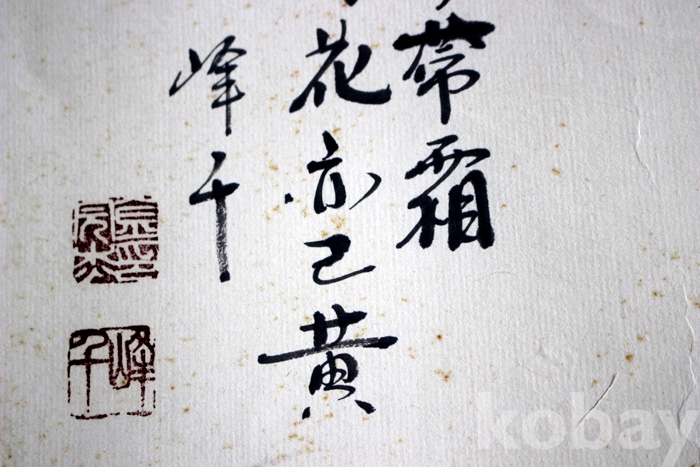 帶霜
花亦已黄
峰千
峰千
kobay